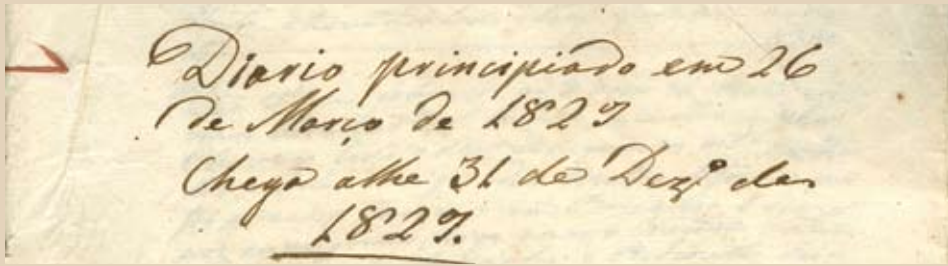 Diario principiado em 26
de Março de 1829
Chega athe 31 de Dezº de
1829.